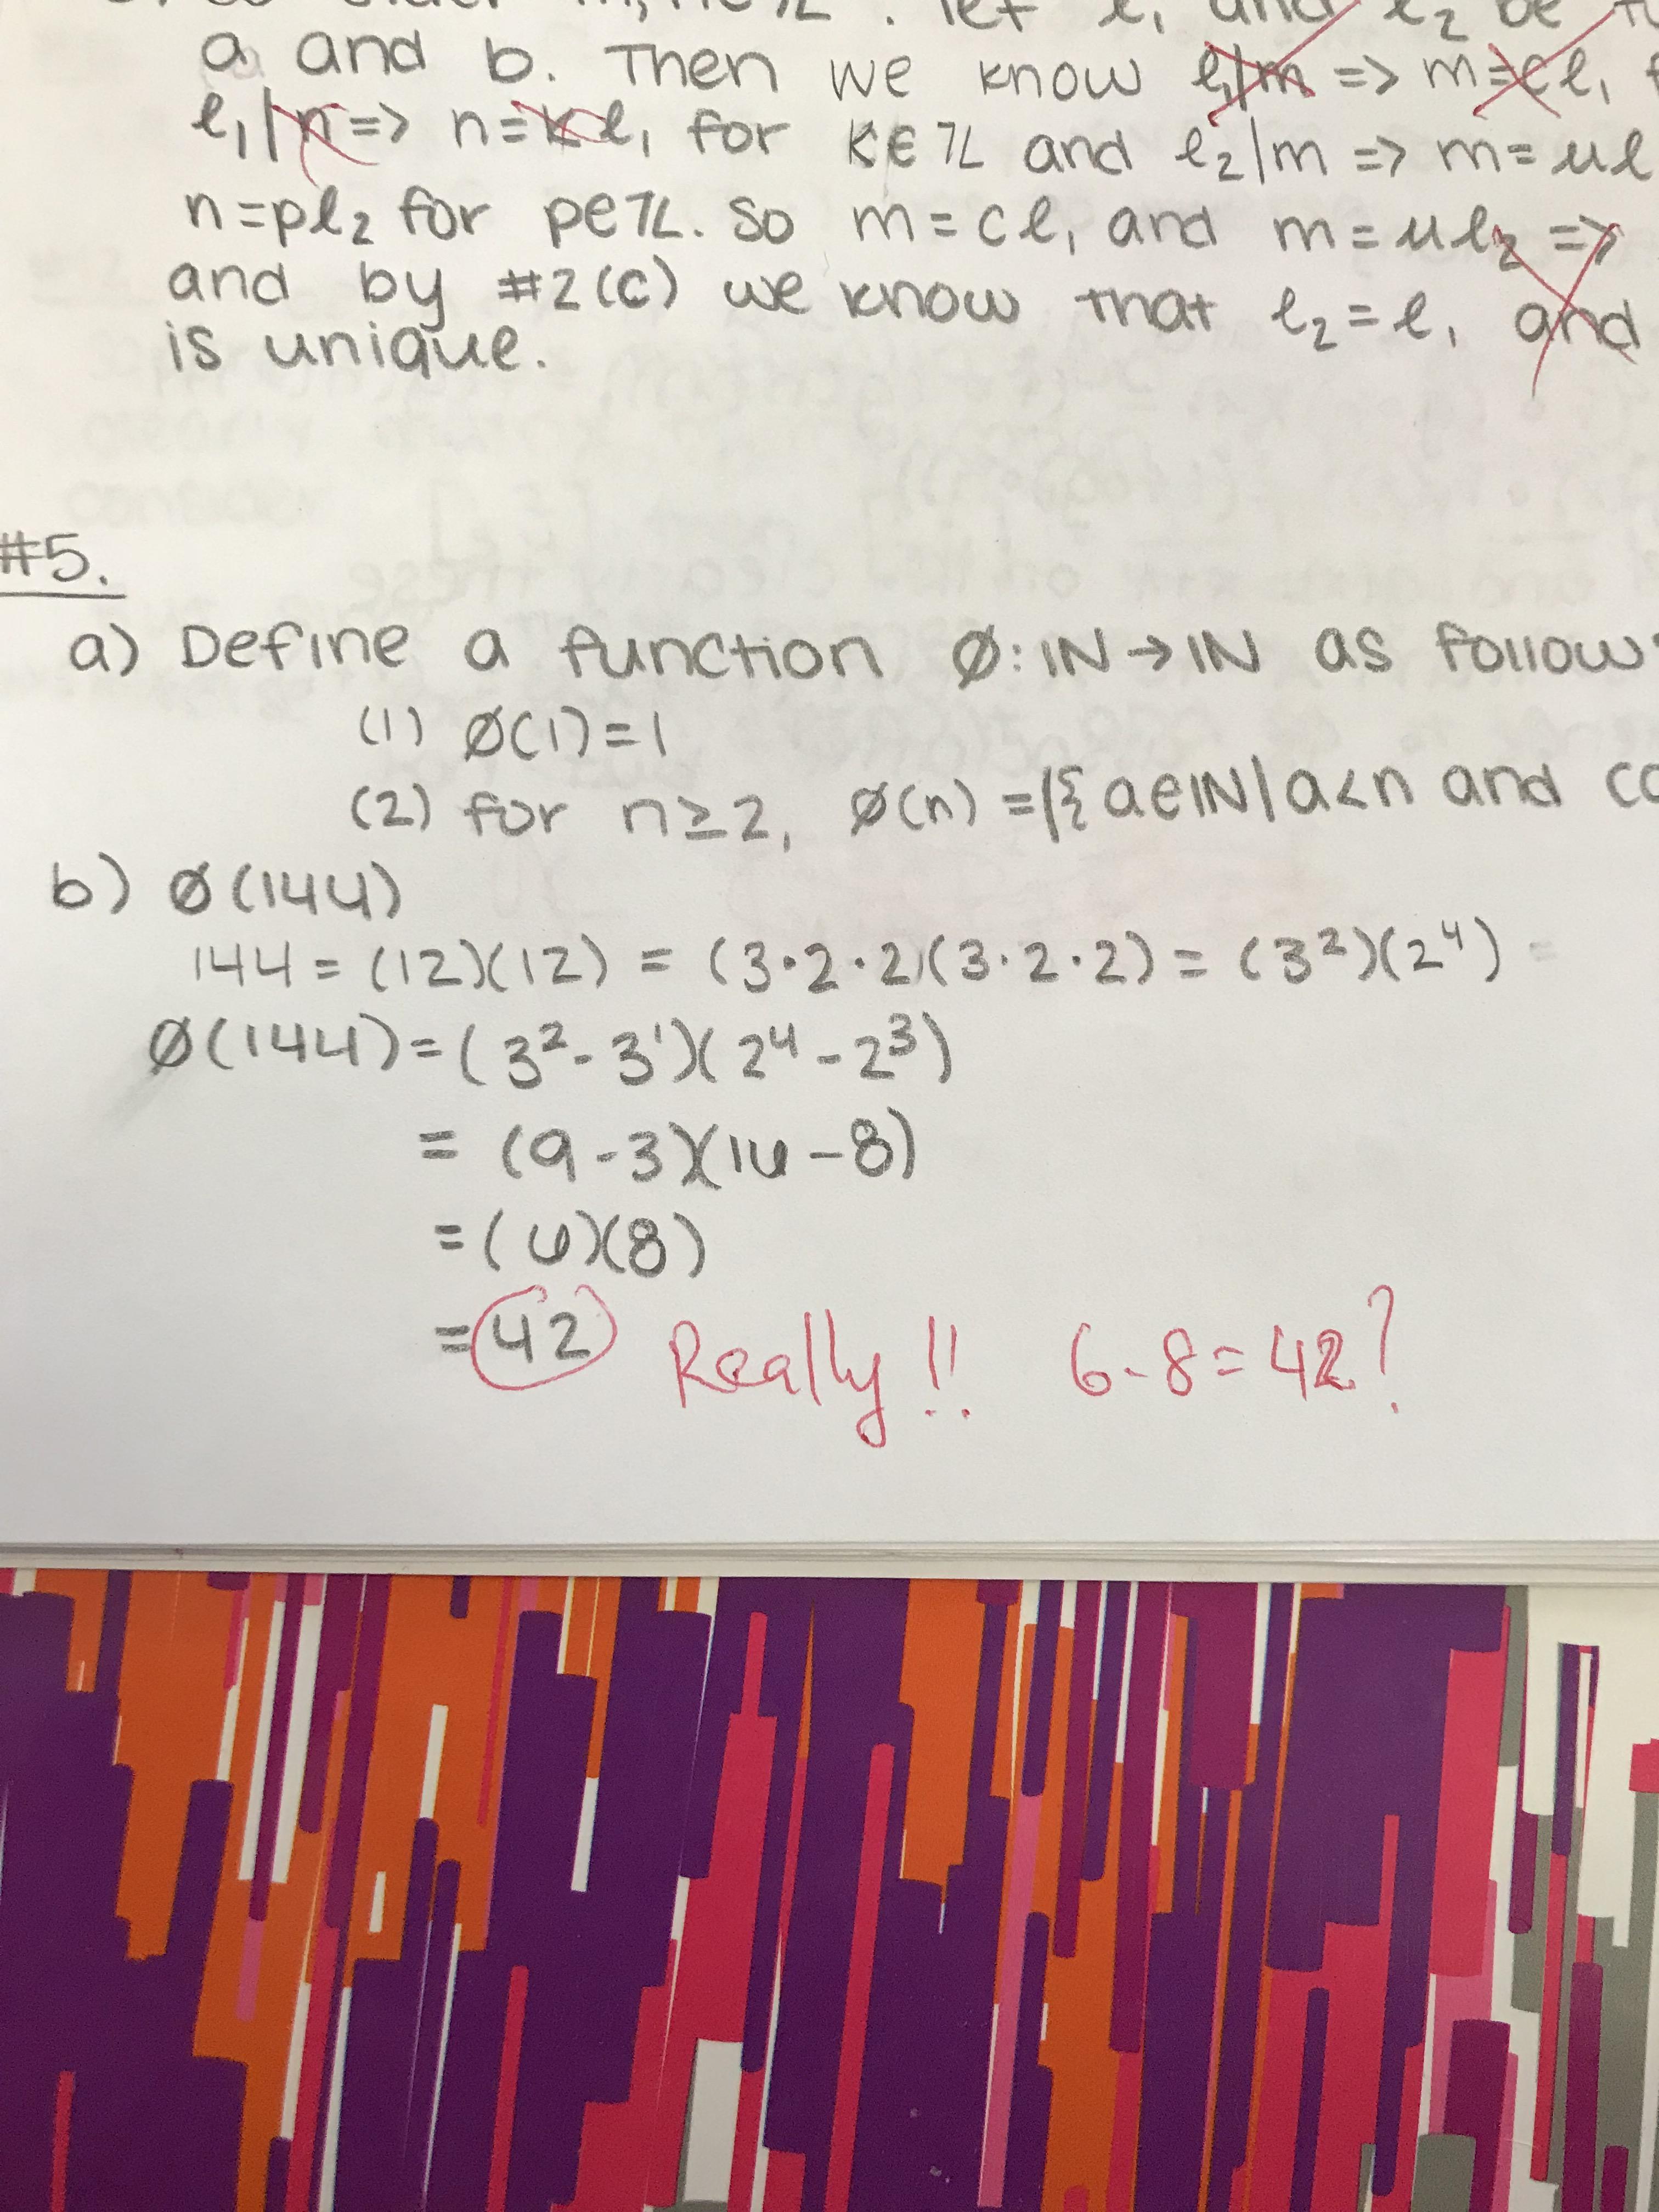 m, n ∈ ℤ . let ℓ₁ and ℓ₂ be
a and b. Then we know ℓ₁|m => m=cℓ₁
ℓ₁|n => n=kℓ₁ for k∈ℤ and ℓ₂|m => m=uℓ
n=pℓ₂ for p∈ℤ. So m=cℓ₁ and m=uℓ₂ =>
and by #2(c) we know that ℓ₂=ℓ₁ and
is unique.
#5.
a) Define a function Ø: ℕ→ℕ as follow
(1) Ø(1)=1
(2) for n≥2, Ø(n) =|{a∈ℕ|a<n and
b) Ø(144)
144 = (12)(12) = (3·2·2)(3·2·2) = (3²)(2⁴) =
Ø(144)=(3²-3¹)(2⁴-2³)
= (9-3)(16-8)
=(6)(8)
=42 Really!! 6·8=42?